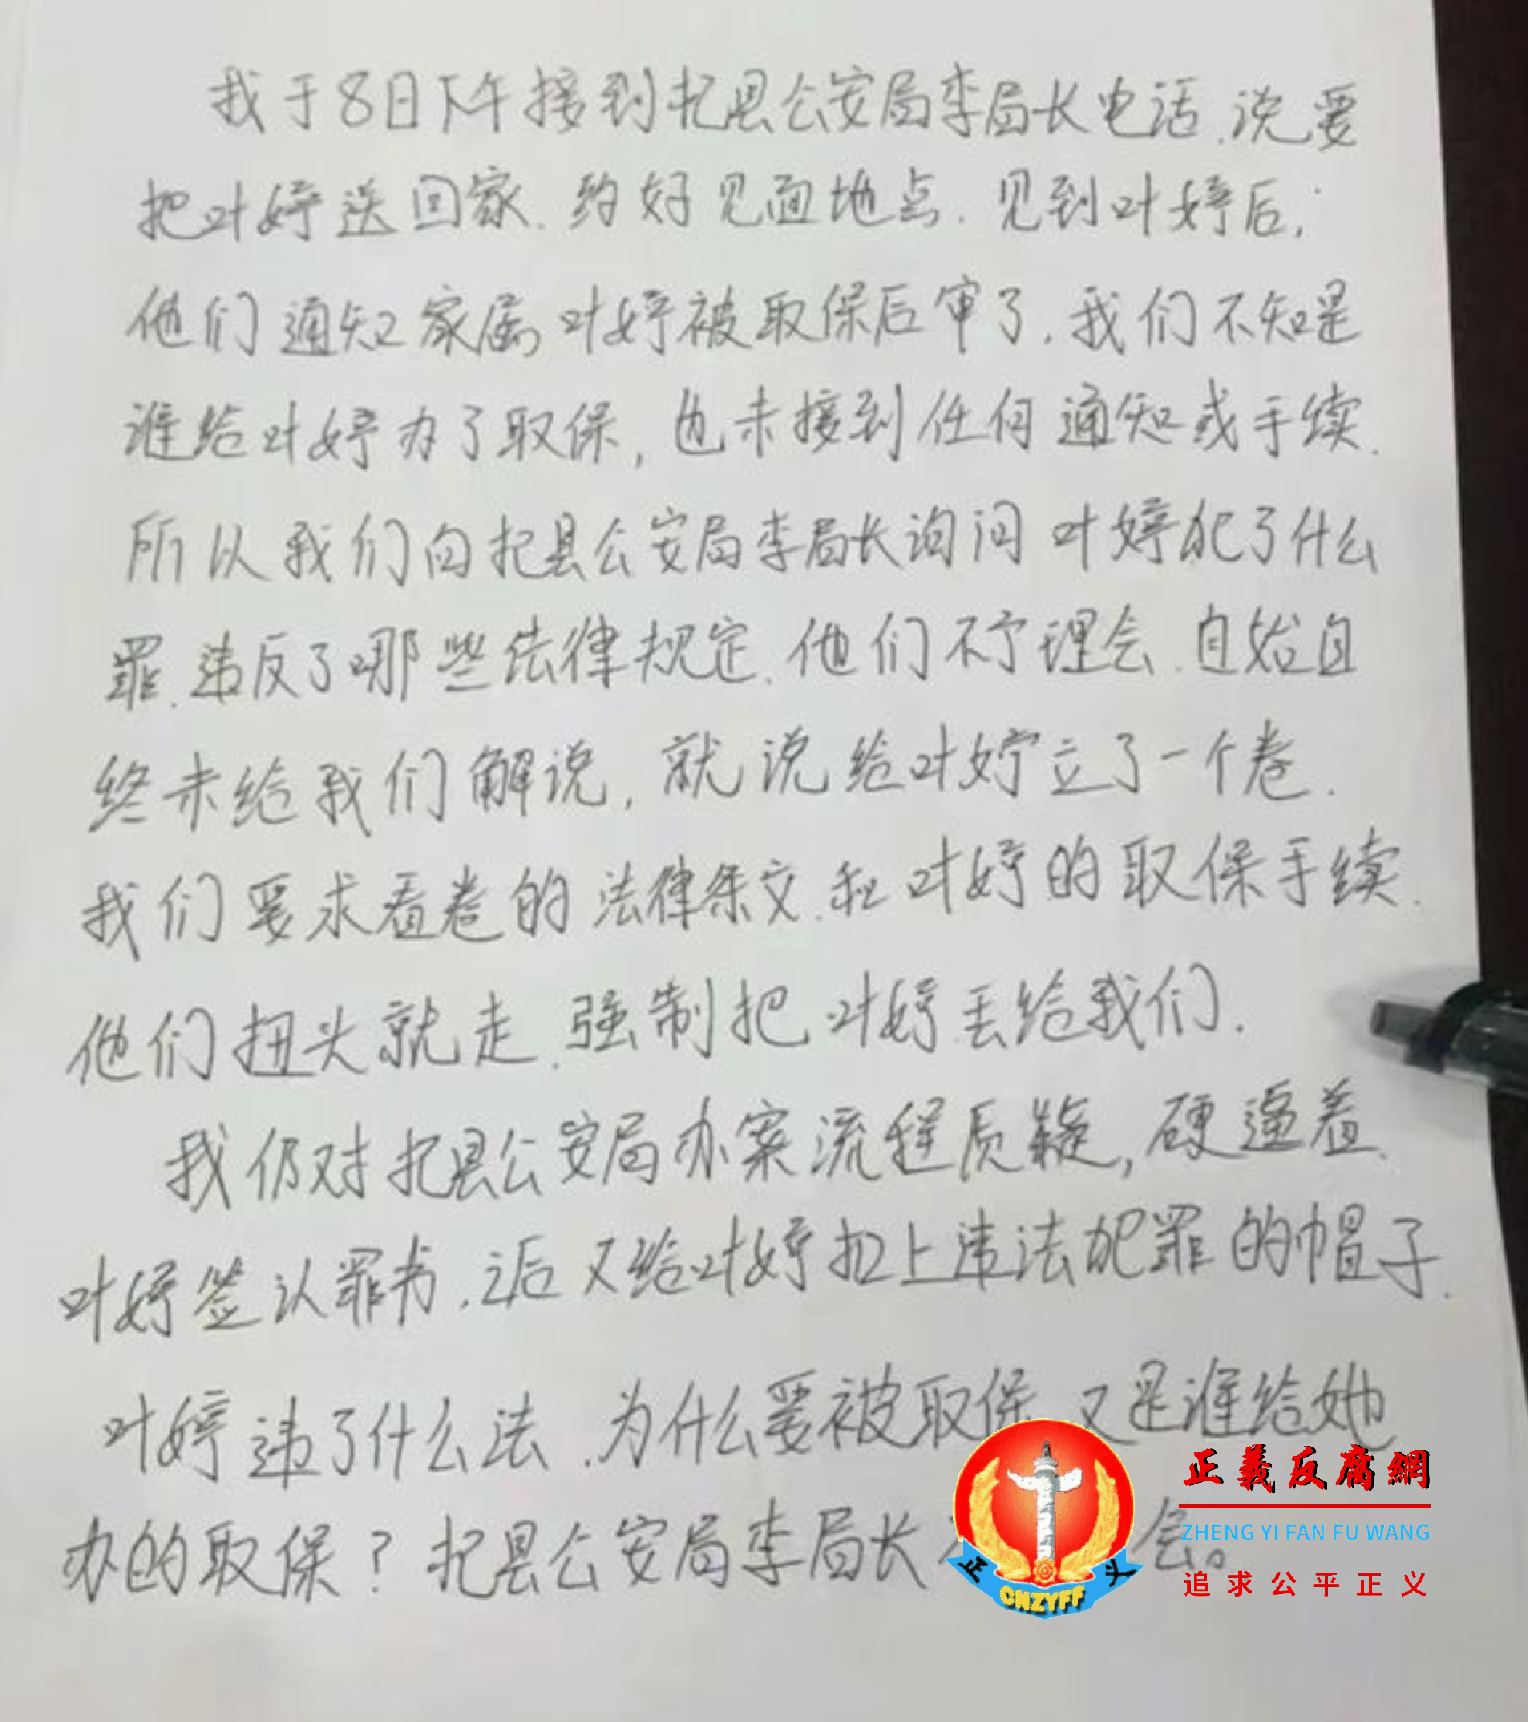 我于8日下午接到杞县公安局李局长电话.说要
把叶婷送回家.约好见面地点.见到叶婷后,
他们通知家属叶婷被取保后审了.我们不知是
谁给叶婷办了取保,也未接到任何通知或手续.
所以我们向杞县公安局李局长询问叶婷犯了什么
罪.违反了哪些法律规定.他们不予理会.自始自
终未给我们解说,就说给叶婷立了一个卷.
我们要求看卷的法律条文.和叶婷的取保手续.
他们扭头就走.强制把叶婷丢给我们.
我仍对杞县公安局办案流程质疑,硬逼着
叶婷签认罪书.之后又给叶婷扣上违法犯罪的帽子.
叶婷违了什么法.为什么要被取保 又是谁给她
办的取保?杞县公安局李局长 会。
正義反腐網
ZHENG YI FAN FU WANG
追求公平正义
正义
CNZYFF